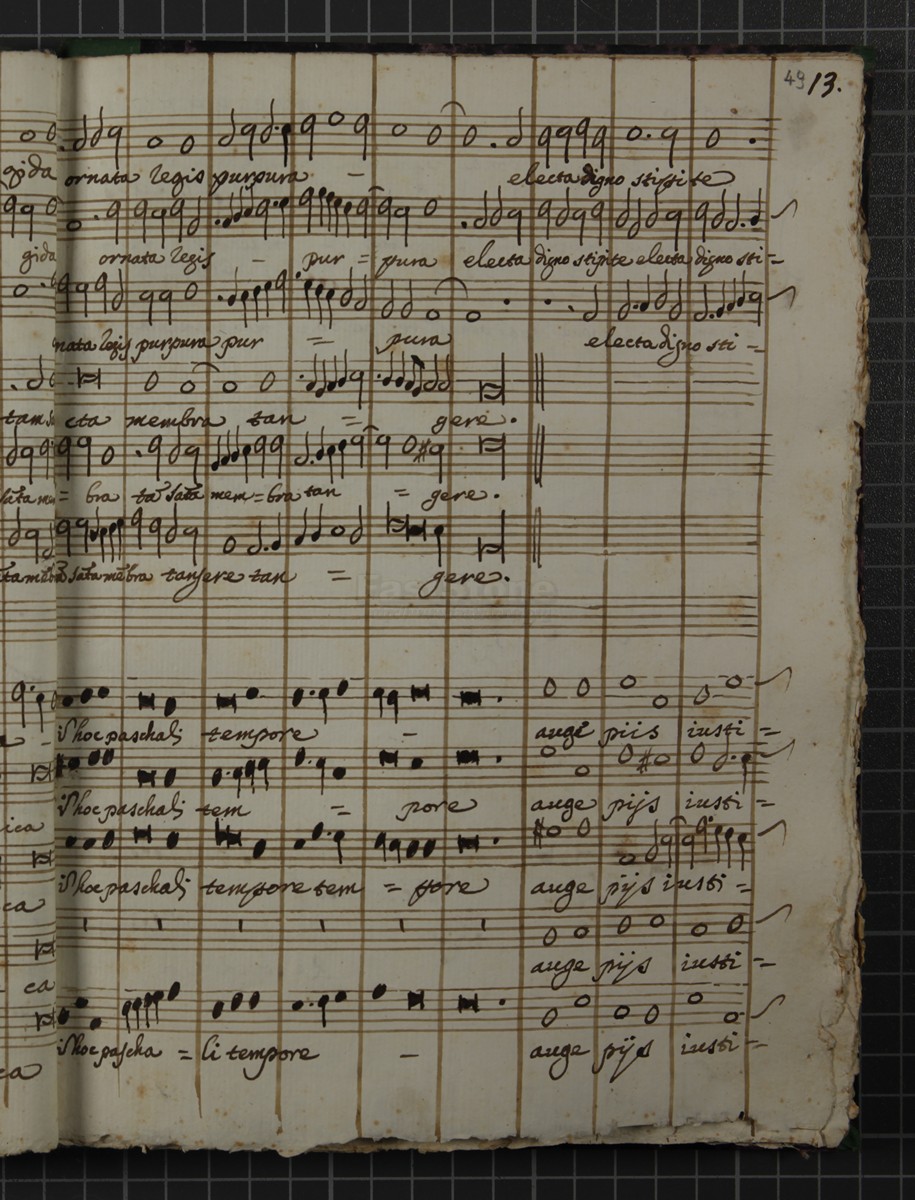 49 13.
gida ornata regis purpura - electa digno stipite
gida ornata regis - pur = pura electa digno stipite electa digno sti=
nata regis purpura pur = pura electa digno sti =
cta membra tan = gere.
= bra mem=bra tan = gere.
tangere tan = gere.
hoc paschali tempore - auge piis iusti =
hoc paschali tem = pore auge pijs iusti =
ica
hoc paschali tempore tem = pore auge pijs iusti =
ca
auge pijs iusti =
ca
hoc pascha = li tempore - auge pijs iusti =
ca